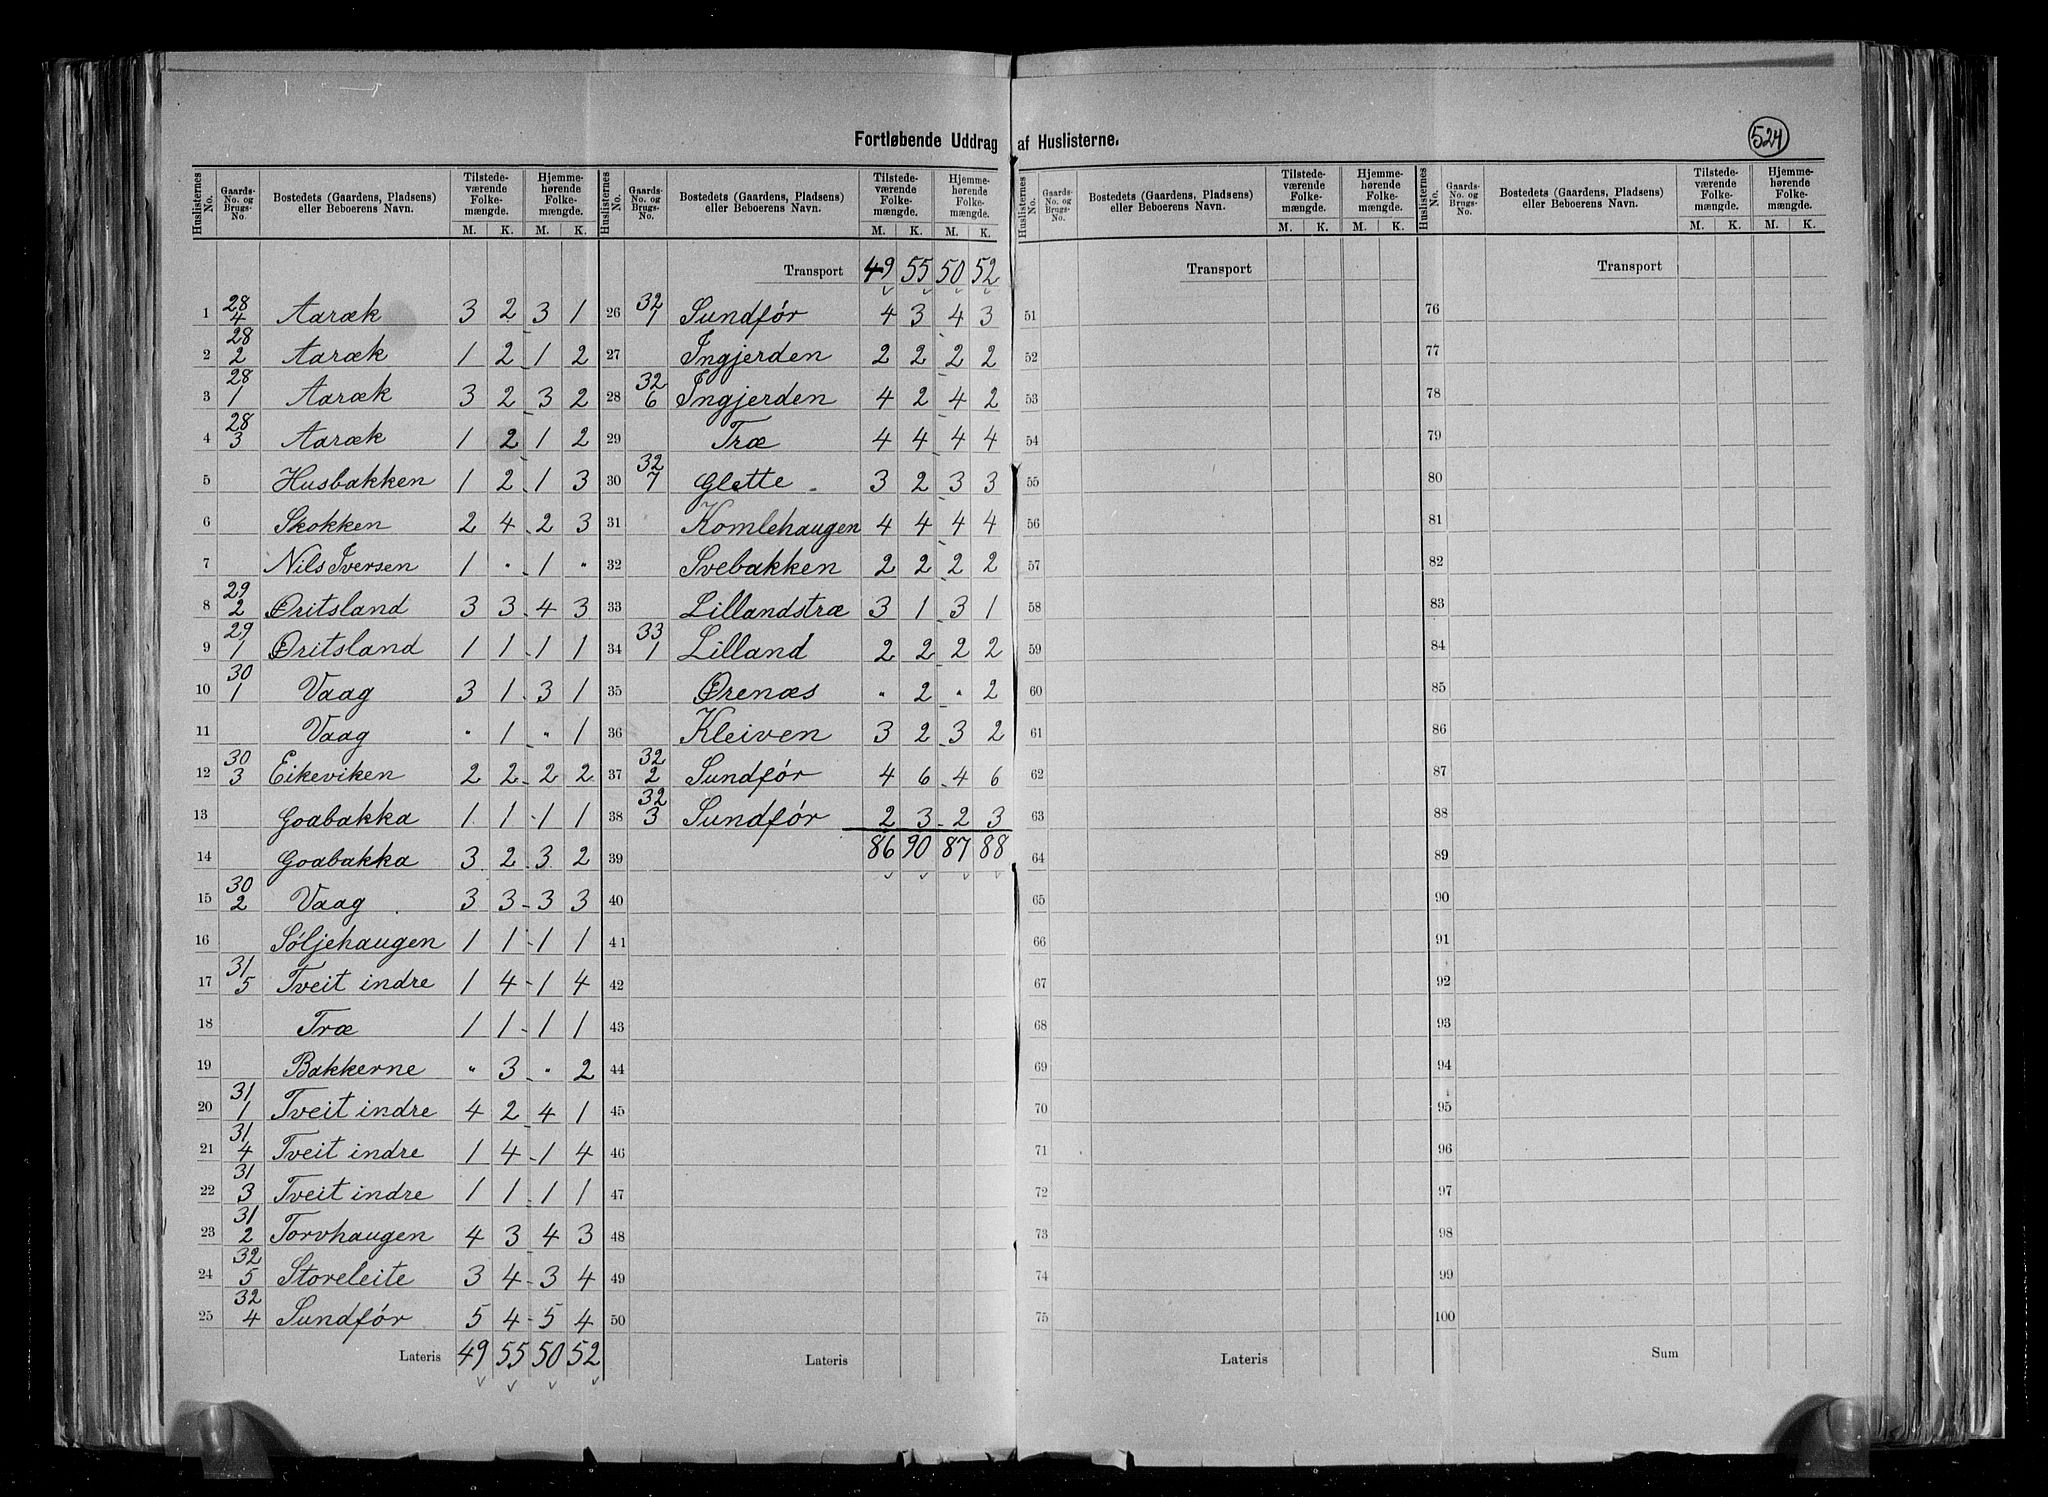 Fortløbende Uddrag af Huslisterne.
524
Huslisternes No. | Gaards-No. og Brugs-No. | Bostedets (Gaardens, Pladsens) eller Beboerens Navn. | Tilstedeværende Folkemængde. M. K. | Hjemmehørende Folkemængde. M. K.
1 28/4 Aaræk 3 2 3 1
2 28/2 Aaræk 1 2 1 2
3 28/1 Aaræk 3 2 3 2
4 28/3 Aaræk 1 2 1 2
5 Husbakken 1 2 1 3
6 Skokken 2 4 2 3
7 Nils Iversen 1 " 1 "
8 29/2 Øritsland 3 3 4 3
9 29/1 Øritsland 1 1 1 1
10 30/1 Vaag 3 1 3 1
11 Vaag " 1 " 1
12 30/3 Eikeviken 2 2 2 2
13 Goabakka 1 1 1 1
14 Goabakka 3 2 3 2
15 30/2 Vaag 3 3 3 3
16 Søljehaugen 1 1 1 1
17 31/5 Tveit indre 1 4 1 4
18 Træ 1 1 1 1
19 Bakkerne " 3 " 2
20 31/1 Tveit indre 4 2 4 1
21 31/4 Tveit indre 1 4 1 4
22 31/3 Tveit indre 1 1 1 1
23 31/2 Torvhaugen 4 3 4 3
24 32/5 Storeleite 3 4 3 4
25 32/4 Sundfør 5 4 5 4
Lateris 49 55 50 52
Huslisternes No. | Gaards-No. og Brugs-No. | Bostedets (Gaardens, Pladsens) eller Beboerens Navn. | Tilstedeværende Folkemængde. M. K. | Hjemmehørende Folkemængde. M. K.
Transport 49 55 50 52
26 32/1 Sundfør 4 3 4 3
27 Ingjerden 2 2 2 2
28 32/6 Ingjerden 4 2 4 2
29 Træ 4 4 4 4
30 32/7 Glette 3 2 3 3
31 Komlehaugen 4 4 4 4
32 Svebakken 2 2 2 2
33 Lillandstræ 3 1 3 1
34 33/1 Lilland 2 2 2 2
35 Ørenæs " 2 " 2
36 Kleiven 3 2 3 2
37 32/2 Sundfør 4 6 4 6
38 32/3 Sundfør 2 3 2 3
39 86 90 87 88
40
41
42
43
44
45
46
47
48
49
50
Lateris
Huslisternes No. | Gaards-No. og Brugs-No. | Bostedets (Gaardens, Pladsens) eller Beboerens Navn. | Tilstedeværende Folkemængde. M. K. | Hjemmehørende Folkemængde. M. K.
Transport
51
52
53
54
55
56
57
58
59
60
61
62
63
64
65
66
67
68
69
70
71
72
73
74
75
Lateris
Huslisternes No. | Gaards-No. og Brugs-No. | Bostedets (Gaardens, Pladsens) eller Beboerens Navn. | Tilstedeværende Folkemængde. M. K. | Hjemmehørende Folkemængde. M. K.
Transport
76
77
78
79
80
81
82
83
84
85
86
87
88
89
90
91
92
93
94
95
96
97
98
99
100
Sum